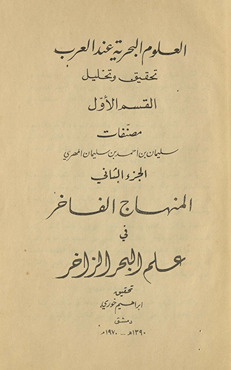 العلوم البحرية عند العرب
تحقيق وتحليل
القسم الأول
مصنفات
سليمان بن احمد بن سليمان المهري
الجزء الثاني
المنهاج الفاخر
في
علم البحر الزاخر
تحقيق
ابراهيم خوري
دمشق
١٣٩٠هـ - ١٩٧٠م